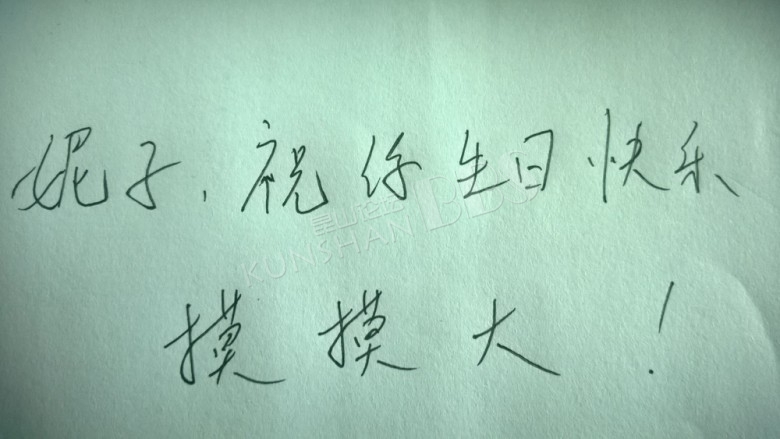 妮子,祝你生日快乐
昆山论坛BBS
KUNSHAN
摸摸大!